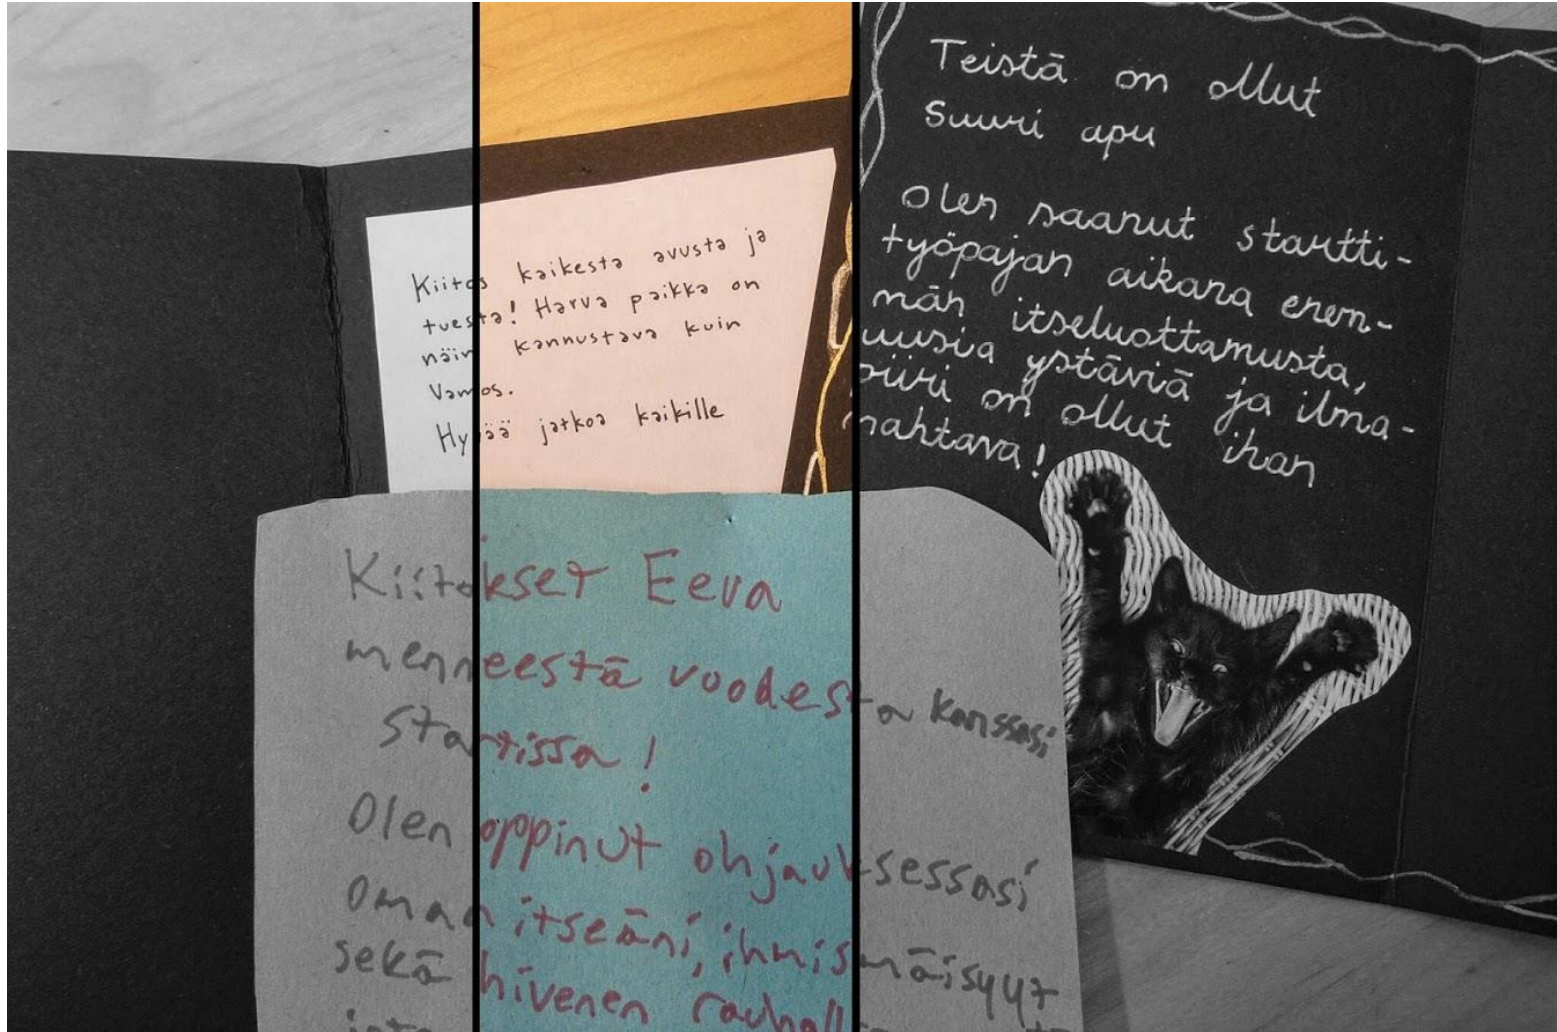 Kiitos kaikesta avusta ja
tuesta! Harva paikka on
näin kannustava kuin
Vamos.
Hyvää jatkoa kaikille
Teistä on ollut
Suuri apu
Olen saanut startti-
työpajan aikana enem-
män itseluottamusta,
uusia ystäviä ja ilma-
piiri on ollut ihan
mahtava!
Kiitokset Eeva
menneestä vuodesta kanssasi
startissa!
Olen oppinut ohjauksessasi
omaa itseäni, ihmismäisyyt
sekä hivenen rauhall